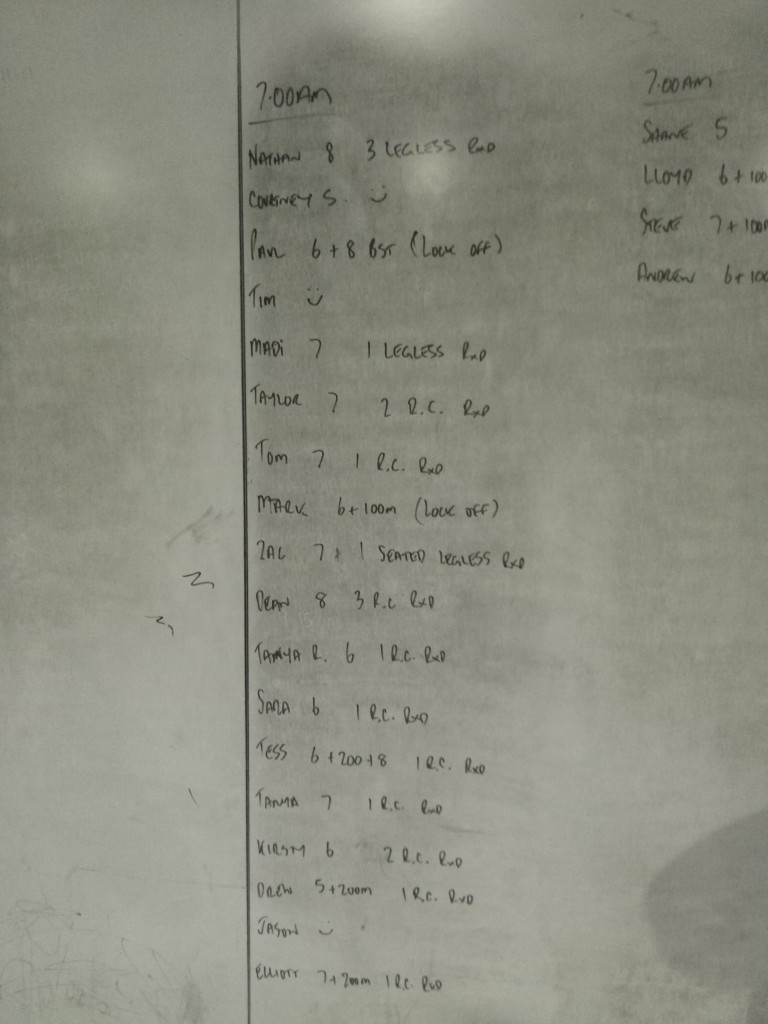 7.00AM
NATHAN 8 3 LEGLESS RxD
COURTNEY S. :)
PAUL 6 + 8 BST (LOCK OFF)
TIM :)
MADI 7 1 LEGLESS RxD
TAYLOR 7 2 R.C. RxD
TOM 7 1 R.C. RxD
MARK 6 + 100m (LOCK OFF)
ZAC 7 + 1 SEATED LEGLESS RxD
DEAN 8 3 R.C RxD
TANYA R. 6 1 R.C. RxD
SARA 6 1 R.C. RxD
TESS 6 + 200 + 8 1 R.C. RxD
TANYA 7 1 R.C. RxD
KIRSTY 6 2 R.C. RxD
DREW 5 + 200m 1 R.C. RxD
JASON :)
ELLIOTT 7 + 200m 1 R.C. RxD
7.00AM
SHANE 5
LLOYD 6 + 100
STEVE 7 + 100m
ANDREW 6 + 100